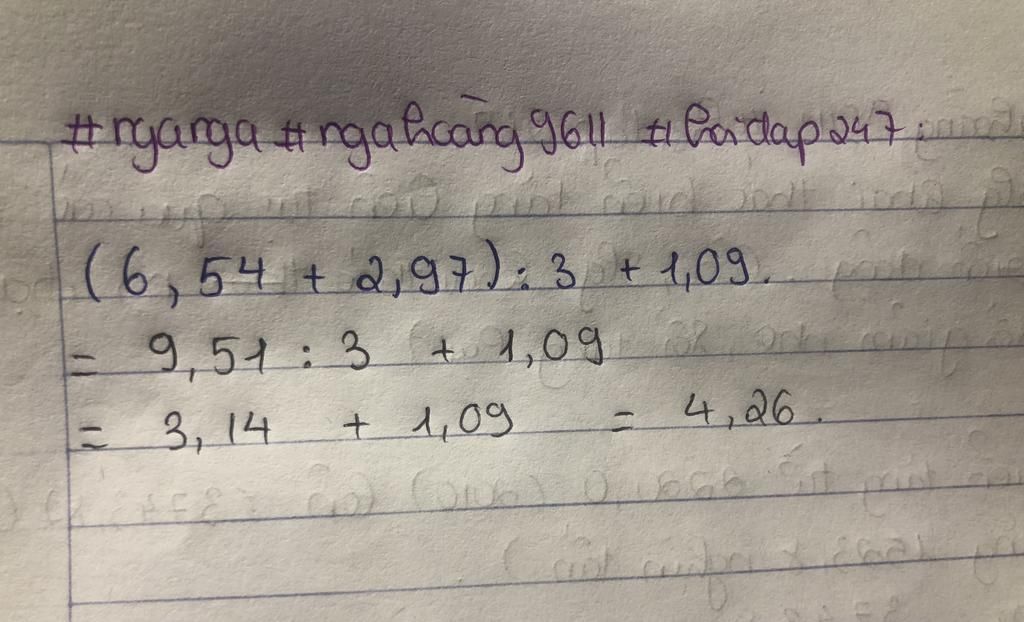 #nganga #ngahoàng9611 #hoidap247.
(6,54 + 2,97) : 3 + 1,09.
= 9,51 : 3 + 1,09
= 3,14 + 1,09 = 4,26.